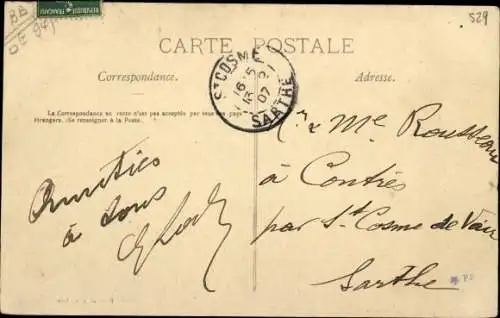 529
RÉPUBLIQUE FRANÇAISE
CARTE POSTALE
Correspondance.
Adresse.
La Correspondance au recto n'est pas acceptée par tous les pays
étrangers. (Se renseigner à la Poste.
ST COSME
SARTHE
07
Mr & Me Rousseau
à Contres
par St Cosme de Vair
Sarthe
Amitiés
à tous